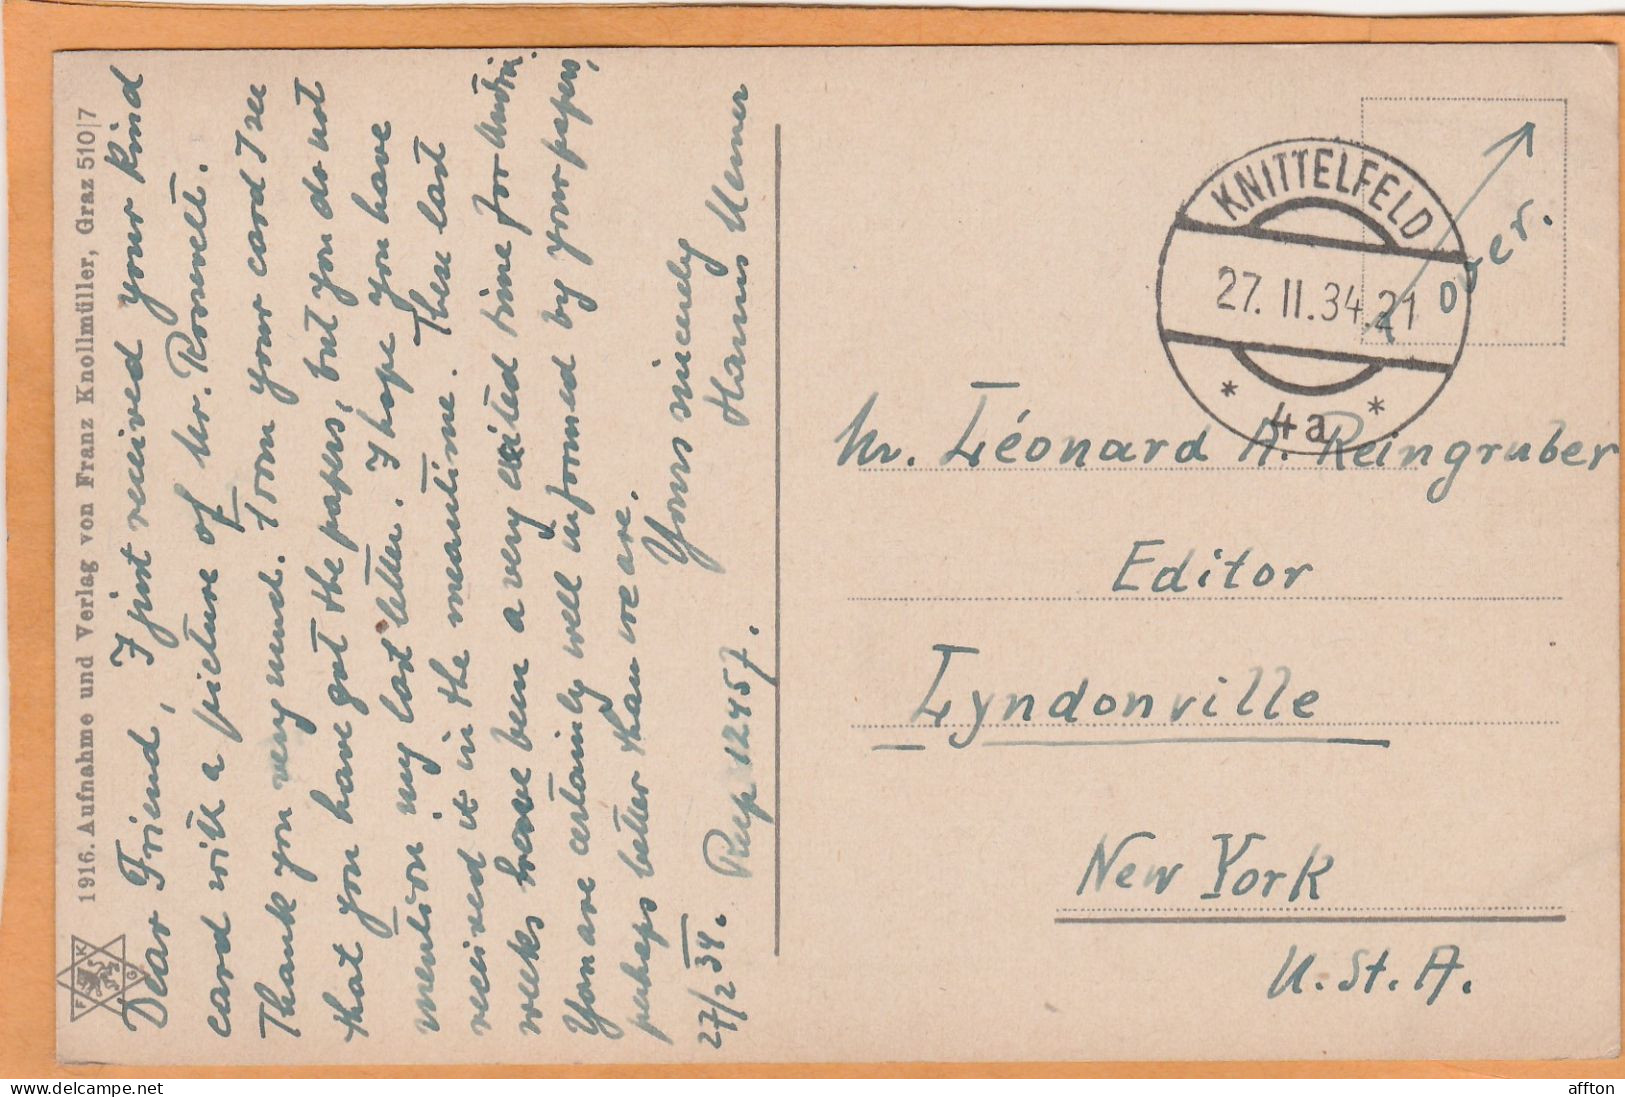 1916. Aufnahme und Verlag von Franz Knollmüller, Graz 510|7
F K G
Dear Friend, I just received your kind
card with a picture of Mr. Roosevelt.
Thank you very much. From your card I see
that you have got the papers, but you do not
mention my last letter. I hope you have
received it in the meantime. These last
weeks have been a very excited time for Austria.
You are certainly well informed by your papers,
perhaps better than we are.
Yours sincerely
27/2 34. 12457. Hanns
KNITTELFELD
27. II. 34. 21
* 4a *
over.
Mr. Léonard A. Reingruber
Editor
Lyndonville
New York
U. St. A.
affton
delcampe.net